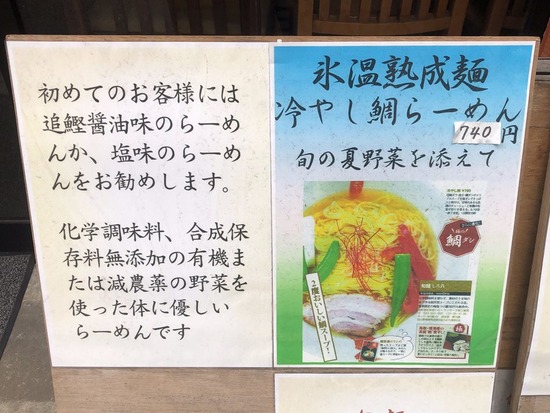 初めてのお客様には
追鰹醤油味のらーめ
んか、塩味のらーめ
んをお勧めします。
化学調味料、合成保
存料無添加の有機ま
たは減農薬の野菜を
使った体に優しい
らーめんです
氷温熟成麺
冷やし鯛らーめん
740円
旬の夏野菜を添えて
鯛ダシ
2度おいしい鯛スープ!